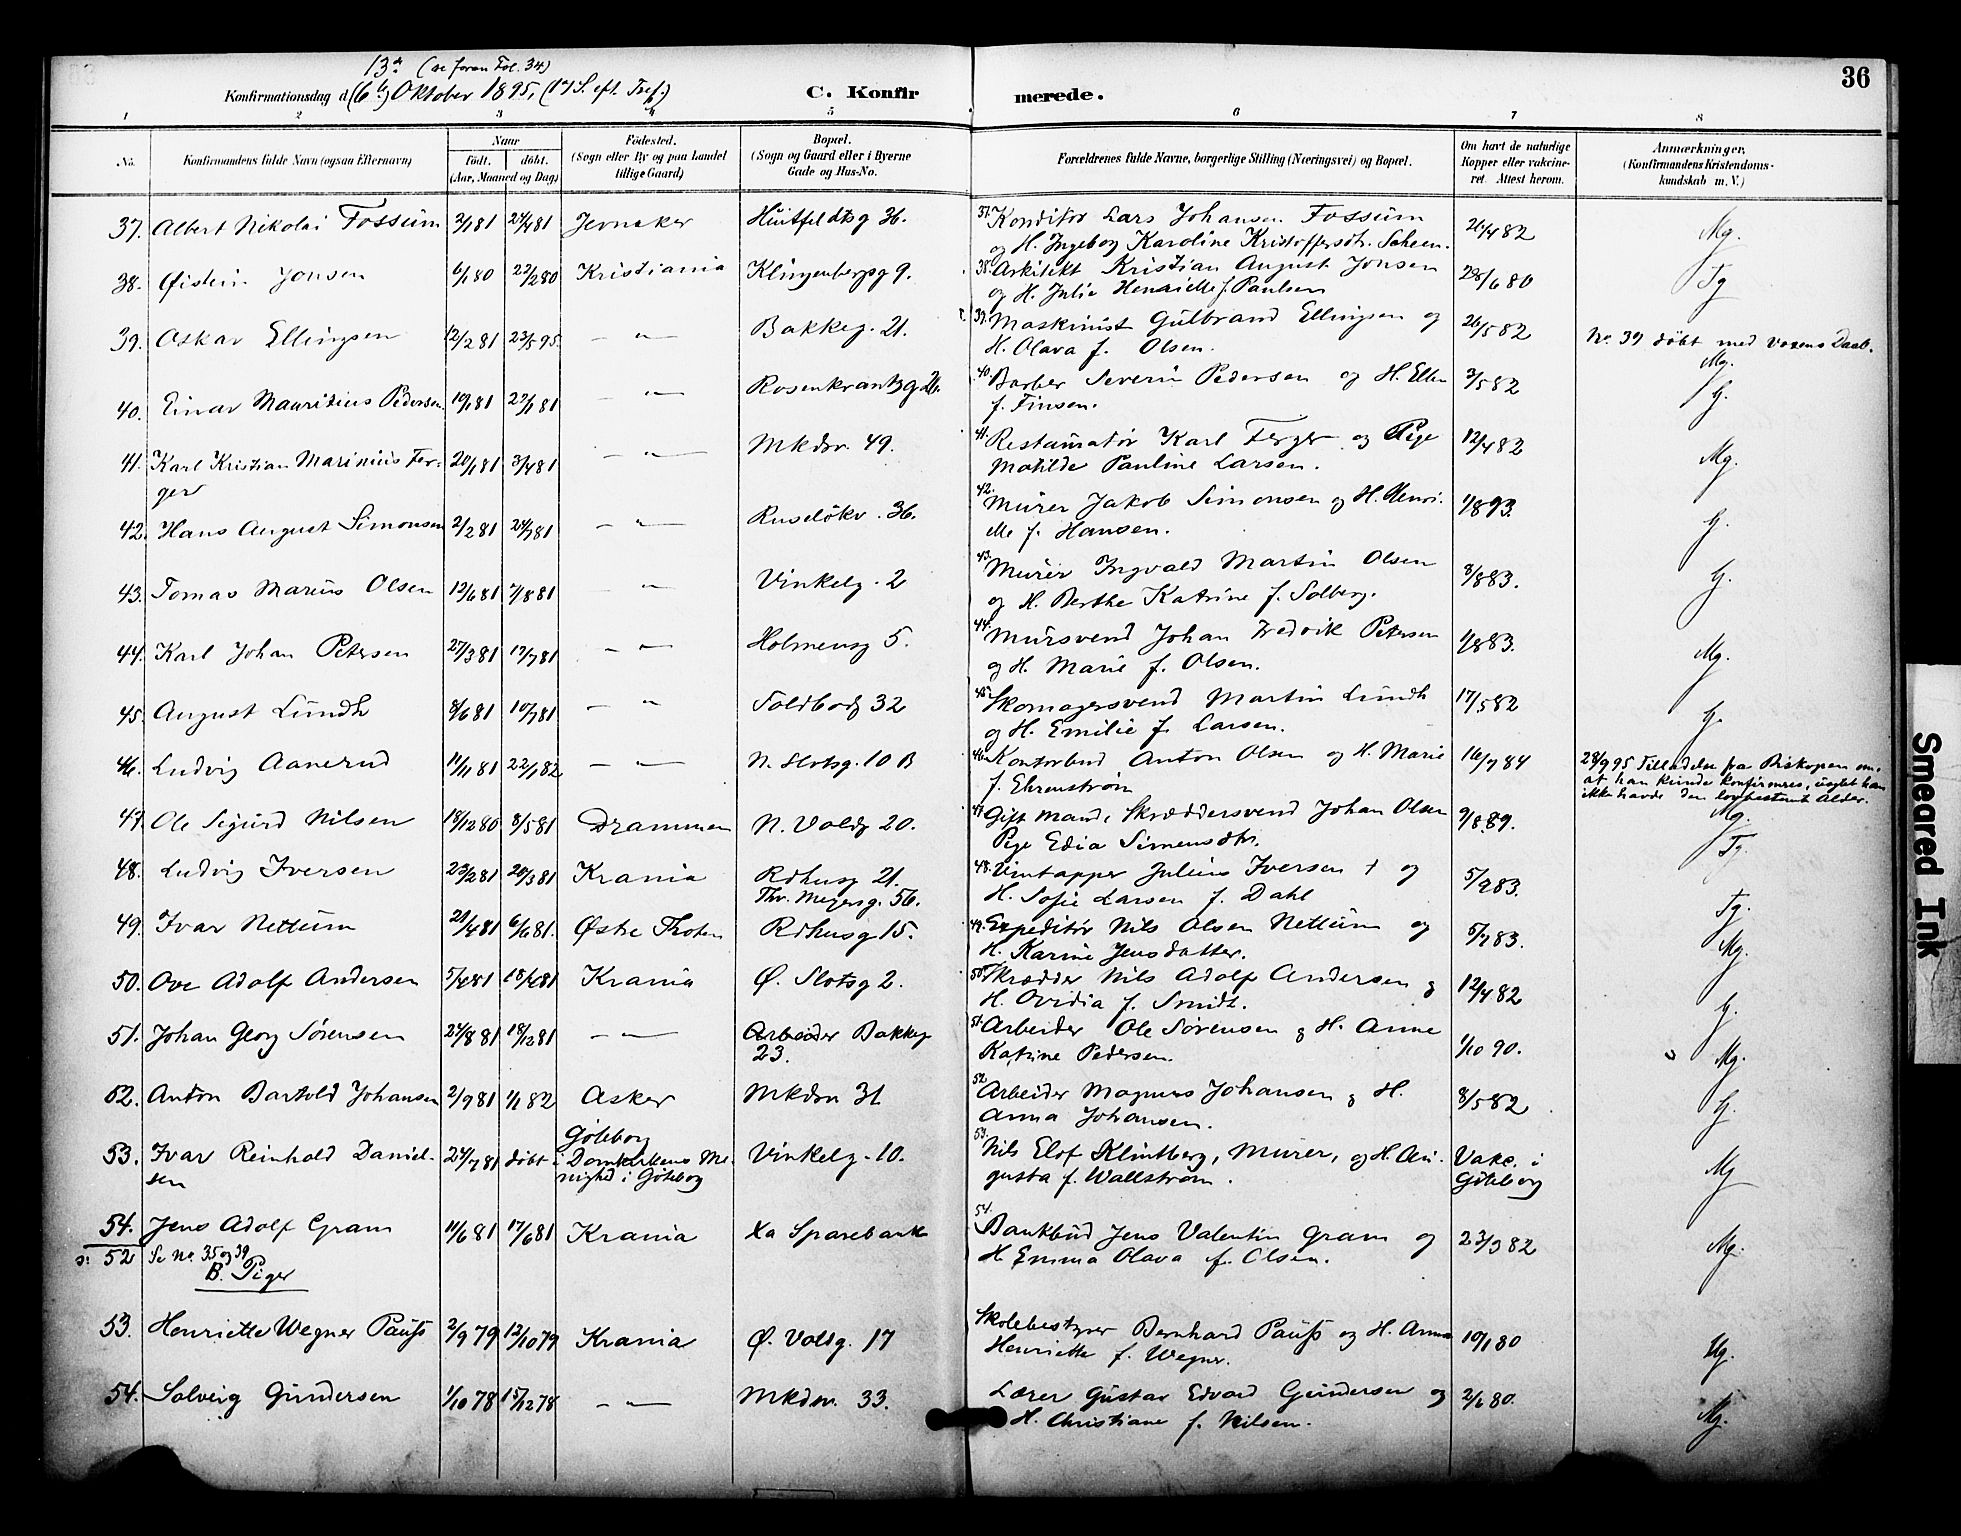 13de (se foran Fol. 34)
Konfirmationsdag d. (6te) Oktober 1895, (17 S. eft. Tref.)
C. Konfirmerede.
36
1 2 3 4 5 6 7 8
No. Konfirmandens fulde Navn (ogsaa Efternavn) Naar født. døbt. (Aar, Maaned og Dag) Fødested. (Sogn eller By og paa Landet tillige Gaard) Bopæl. (Sogn og Gaard eller i Byerne Gade og Hus-No. Forældrenes fulde Navne, borgerlige Stilling (Næringsvei) og Bopæl. Om havt de naturlige Kopper eller vakcineret. Attest herom. Anmærkninger. (Konfirmandens Kristendomskundskab m. V.)
37. Albert Nikolai Fossum 2/1 81 24/4 81 Jevnaker Huitfeldtsg 36. 37. Konditor Lars Johansen Fossum 26/4 82 Mg.
og H. Ingeborg Karoline Kristoffersdtr. Scheen.
38. Øistein Jonsen 6/1 80 22/2 80 Kristiania Klingenbergsg 9. 38. Arkitekt Kristian August Jonsen 28/6 80 Tg
og H. Julie Henriette f. Paulsen
39. Oskar Ellingsen 12/2 81 23/5 95. — " — Bakkeg. 21. 39. Maskinist Gulbrand Ellingsen og 26/5 82 No. 39 døbt med voxens Daab.
H. Olava f. Olsen. Mg.
40. Einar Mauritius Pedersen 19/1 81 27/1 81 — " — Rosenkrantzg 26. 40. Barber Severin Pedersen og H. Ellen 3/5 82 G.
f. Finsen.
41. Karl Kristian Marinius Fer- 20/1 81 3/4 81 — " — Mkdsv. 49. 41. Restauratør Karl Ferger og Pige 12/4 82 Mg.
ger Matilde Pauline Larsen.
42. Hans August Simonsen 2/2 81 24/7 81 — " — Ruseløkv. 36. 42. Murer Jakob Simonsen og H. Henri- 1/8 93. G.
ette f. Hansen.
43. Tomas Marius Olsen 12/6 81 7/8 81 — " — Vinkelg. 2 43. Murer Ingvald Martin Olsen 8/8 83. G.
og H. Berthe Katrine f. Solberg.
44. Karl Johan Petersen 27/3 81 17/7 81 — " — Holmensg 5. 44. Mursvend Johan Fredrik Petersen 1/8 83. Mg.
og H. Marie f. Olsen.
45. August Lundh 8/6 81 10/7 81 — " — Toldbodg 32 45. Skomagersvend Martin Lundh 17/5 82 G.
og H. Emilie f. Larsen.
46. Ludvig Aanerud 11/11 81 22/1 82 — " — N. Slotsg. 10 B 46. Kontorbud Anton Olsen og H. Marie 16/7 84 28/9 95 Tilladelse fra Biskopen om
f. Ehrenstrøm at han kunde konfirmeres, uagtet han
ikke havde den lovbestemte Alder.
Mg.
47. Ole Sigurd Nilsen 18/12 80 8/5 81 Drammen N. Voldg 20. 47. Gift Mand, Skræddersvend Johan Olsen 9/8 89. Tg.
Pige Edia Simensdtr.
48. Ludvig Iversen 23/2 81 20/3 81 Krania Rdhusg 21. 48. Vintapper Julius Iversen † og 5/9 83. Tg.
Thv. Meyersg. 56. H. Sofie Larsen f. Dahl
49. Ivar Nettum 21/4 81 6/6 81. Østre Thoten Rdhusg 15. 49. Expeditør Nils Olsen Nettum og 5/7 83. Mg.
H. Karine Jensdatter.
50. Ove Adolf Andersen 5/4 81 18/4 81 Krania Ø. Slotsg 2. 50. Skrædder Nils Adolf Andersen og 12/4 82 G.
H. Ovidia f. Smidt.
51. Johan Georg Sørensen 24/8 81 18/12 81 — " — Arbeider Bakkeg 51. Arbeider Ole Sørensen og H. Anne 1/10 90. Mg.
23. Katrine Pedersen.
52. Anton Bartold Johansen 2/9 81 1/1 82 Asker Mkdsv 31 52. Arbeider Magnus Johansen og H. 8/5 82 G.
Anna Johansen.
53. Ivar Reinhold Daniel- 24/7 81 døbt i Göteborg Vinkelg. 10. 53. Nils Elof Klintberg, Murer, og H. Au- Vakc. i Mg
sen Domkirkens Me- gusta f. Wallström. Göteborg
nighed i Göteborg
54. Jens Adolf Gram 11/6 81 17/6 81 Krania Xa Sparebank 54. Bankbud Jens Valentin Gram og 23/3 82 Mg.
ɔ: 52 Se No. 35 og 39 H. Emma Olava f. Olsen.
B. Piger
53. Henriette Wegner Pauss 2/9 79 12/10 79 Krania Ø. Voldg. 17 Skolebestyrer Bernhard Pauss og H. Anna 10/1 80 Mg.
Henriette f. Wegner.
54. Solveig Gundersen 1/10 78 15/12 78 — " — Mkdsv. 33. Lærer Gustav Edvard Gundersen og 2/6 80. Mg.
H. Christiane f. Nilsen.
Smeared Ink